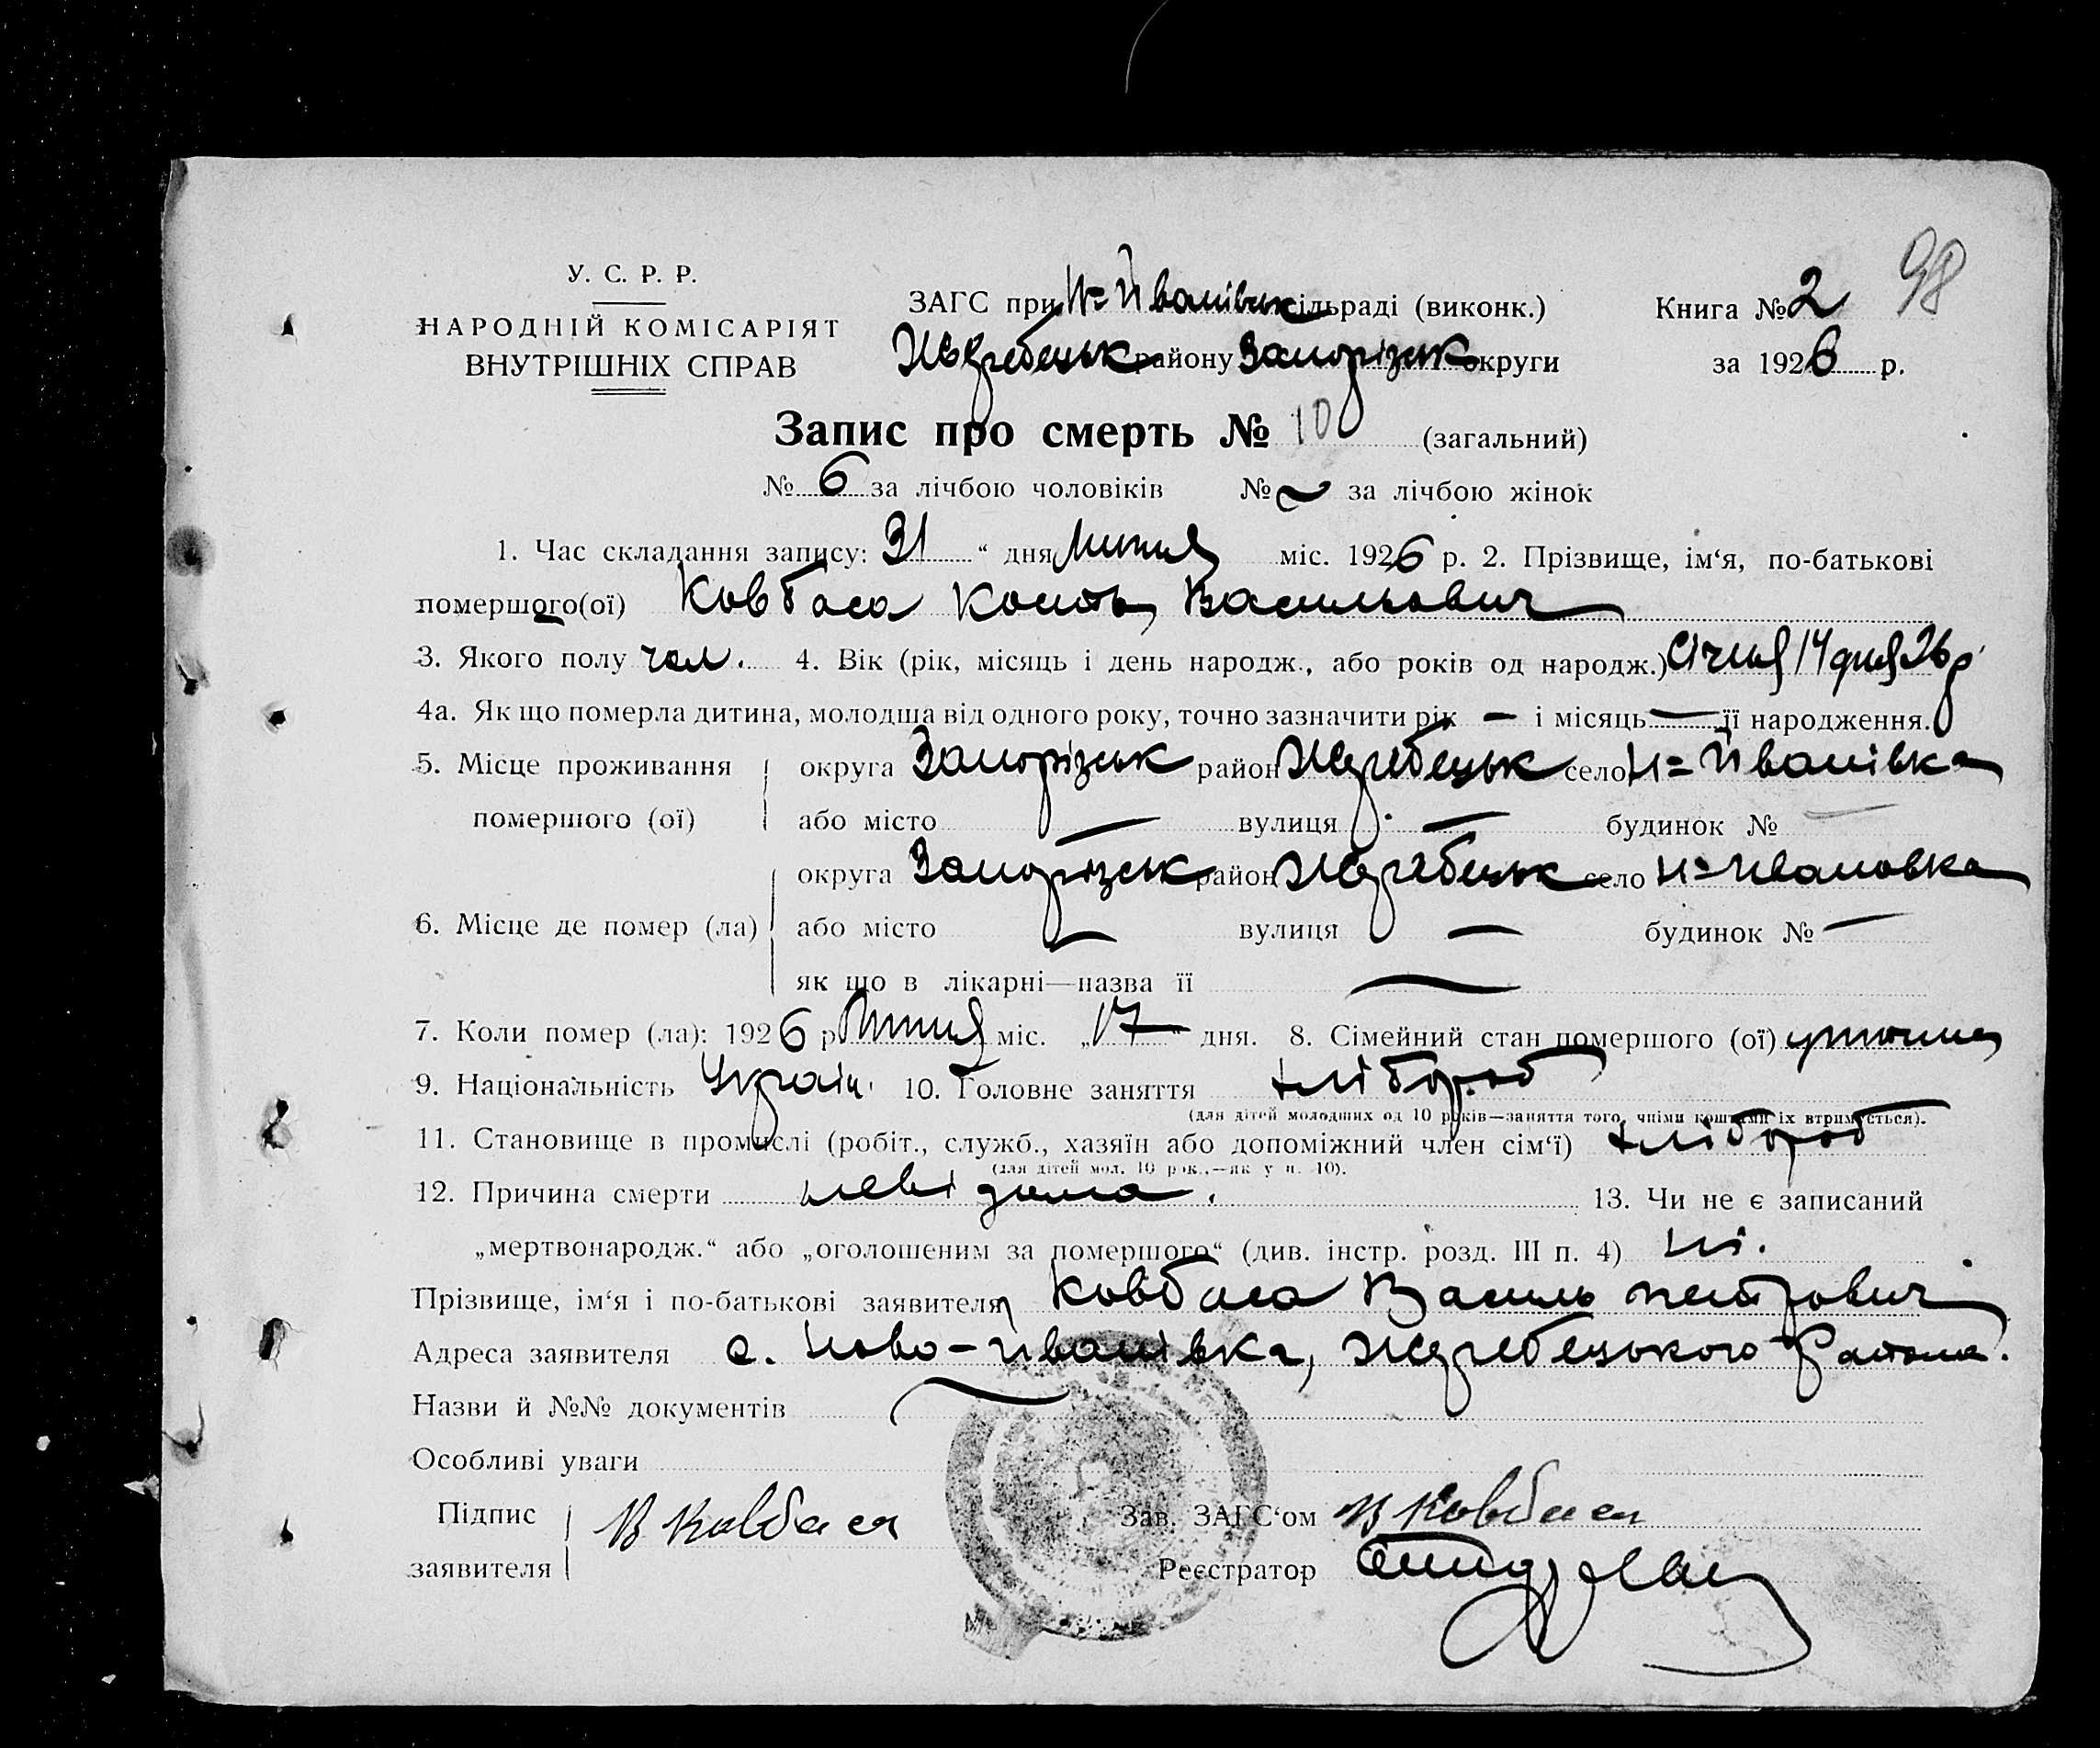 98
У. С. Р. Р.
НАРОДНІЙ КОМІСАРІЯТ
ВНУТРІШНІХ СПРАВ
ЗАГС при Н=Иванівськ сільраді (виконк.)
Жеребецьк району Запорізьк округи
Книга № 2
за 1926 р.
Запис про смерть № 10 (загальний)
№ 6 за лічбою чоловіків № за лічбою жінок
1. Час складання запису: 31 “ дня Липня міс. 1926 р. 2. Прізвище, ім‘я, по-батькові
помершого(ої) Ковбаса Кость Васильович
3. Якого полу чол. 4. Вік (рік, місяць і день народж., або років од народж.) Січня 14 дня 26 р
4а. Як що померла дитина, молодша від одного року, точно зазначити рік — і місяць — її народження.
5. Місце проживання округа Запорізьк район Жеребецьк село Н=Иванівка
помершого (ої) або місто — вулиця — будинок № —
округа Запорізьк район Жеребецьк село Н=Ивановка
6. Місце де помер (ла) або місто — вулиця — будинок № —
як що в лікарні—назва її —
7. Коли помер (ла): 1926 р Липня міс. „17“ дня. 8. Сімейний стан помершого (ої)
9. Національність Україн. 10. Головне заняття хлібороб
(для дітей молодших од 10 років—заняття того, чиїми коштами їх втримується).
11. Становище в промислі (робіт., служб., хазяїн або допоміжний член сім‘ї) хлібороб
(для дітей мол. 10 рок.,—як у п. 10).
12. Причина смерти невідома. 13. Чи не є записаний
„мертвонародж.“ або „оголошеним за помершого“ (див. інстр. розд. III п. 4) ні.
Прізвище, ім‘я і по-батькові заявителя Ковбаса Василь Петрович
Адреса заявителя с. Ново-Иванівка, Жеребецького Района.
Назви й №№ документів —
Особливі уваги
Підпис
заявителя В Ковбаса
Зав. ЗАГС‘ом В Ковбаса
Реєстратор